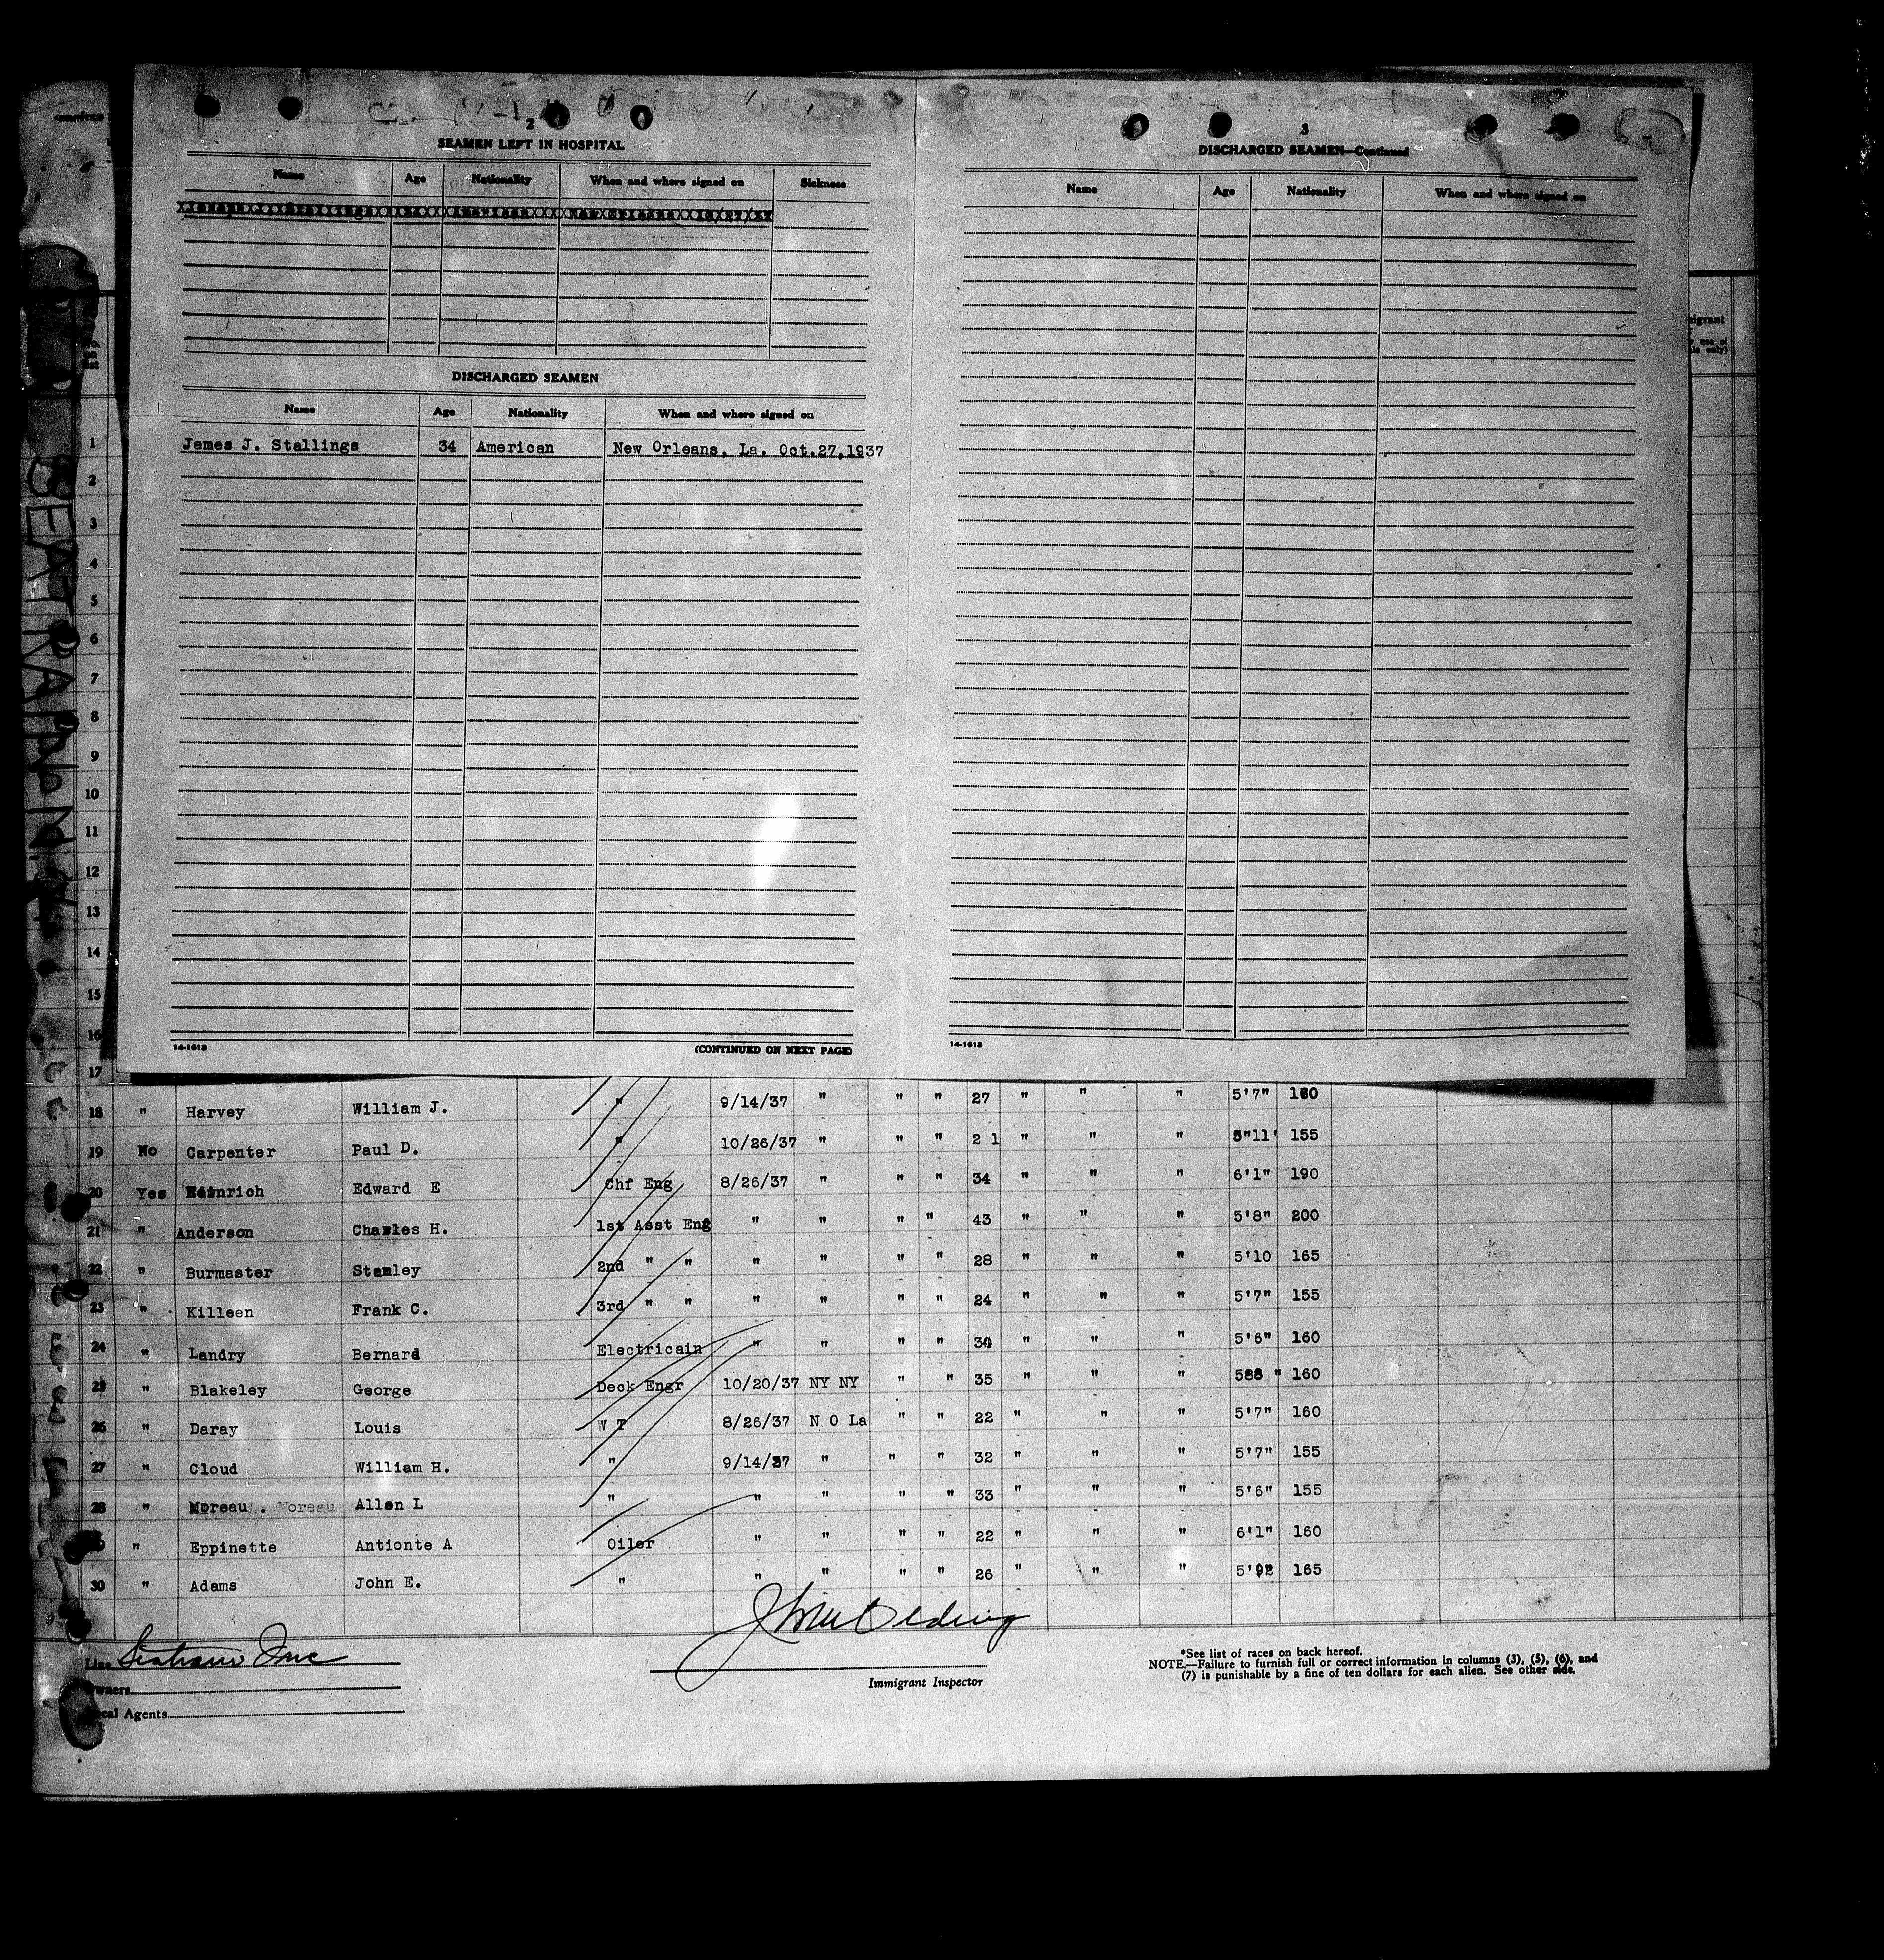 2
SEAMEN LEFT IN HOSPITAL
Name Age Nationality When and where signed on Sickness
DISCHARGED SEAMEN
Name Age Nationality When and where signed on
James J. Stallings 34 American New Orleans, La. Oct.27,1937
14-1613 (CONTINUED ON NEXT PAGE)
3
DISCHARGED SEAMEN—Continued
Name Age Nationality When and where signed on
14-1613
migrant
use of
only)
1
2
3
4
5
6
7
8
9
10
11
12
13
14
15
16
17
18 " Harvey William J. " 9/14/37 " " " 27 " " " 5'7" 160
19 No Carpenter Paul D. " 10/26/37 " " " 2 1 " " " 5"11' 155
20 Yes Edward E Chf Eng 8/26/37 " " " 34 " " " 6'1" 190
21 " Anderson Charles H. 1st Asst Eng " " " " 43 " " " 5'8" 200
22 " Burmaster Stanley 2nd " " " " " " 28 " " " 5'10 165
23 " Killeen Frank C. 3rd " " " " " " 24 " " " 5'7" 155
24 " Landry Bernard Electricain " " " " 30 " " " 5'6" 160
25 " Blakeley George Deck Engr 10/20/37 NY NY " " 35 " " " " 160
26 " Daray Louis W T 8/26/37 N O La " " 22 " " " 5'7" 160
27 " Cloud William H. " 9/14/37 " " " 32 " " " 5'7" 155
28 " Moreau . Moreau Allen L " " " " " 33 " " " 5'6" 155
" Eppinette Antionte A Oiler " " " " 22 " " " 6'1" 160
30 " Adams John E. " " " " " 26 " " " 165
Line Seatrain Inc
Owners
Local Agents
Immigrant Inspector
*See list of races on back hereof.
NOTE.—Failure to furnish full or correct information in columns (3), (5), (6), and
(7) is punishable by a fine of ten dollars for each alien. See other side.